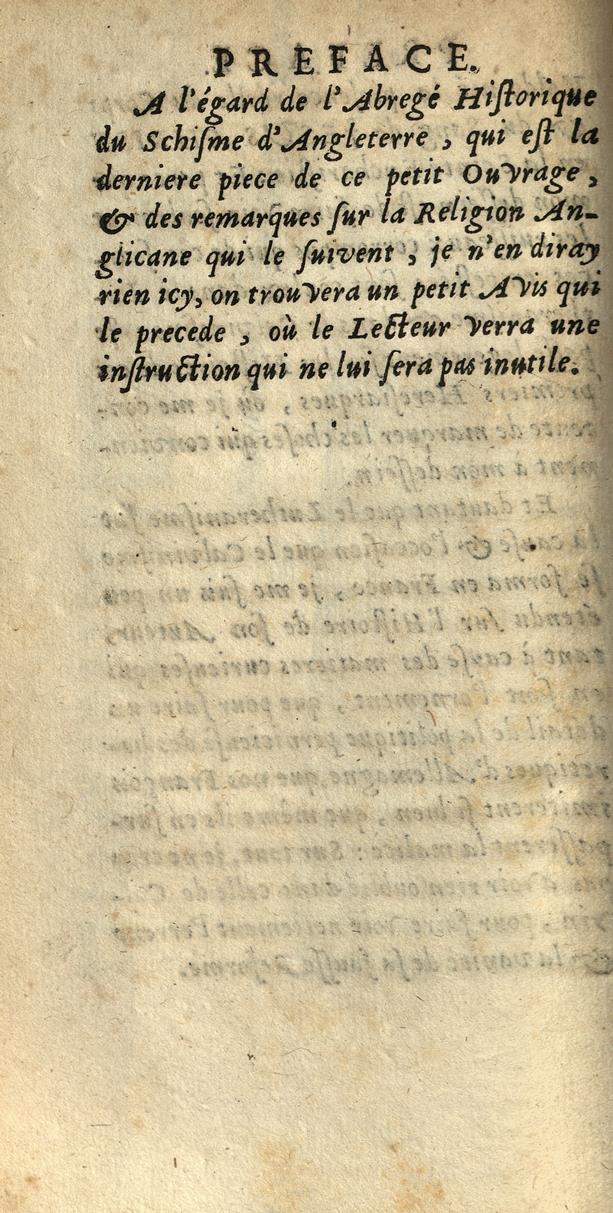 PREFACE.
A l'égard de l'Abregé Hiſtorique
du Schiſme d'Angleterre, qui eſt la
derniere piece de ce petit Ouvrage,
& des remarques ſur la Religion An-
glicane qui le ſuivent, je n'en diray
rien icy, on trouvera un petit Avis qui
le precede, où le Lecteur verra une
inſtruction qui ne lui ſera pas inutile.